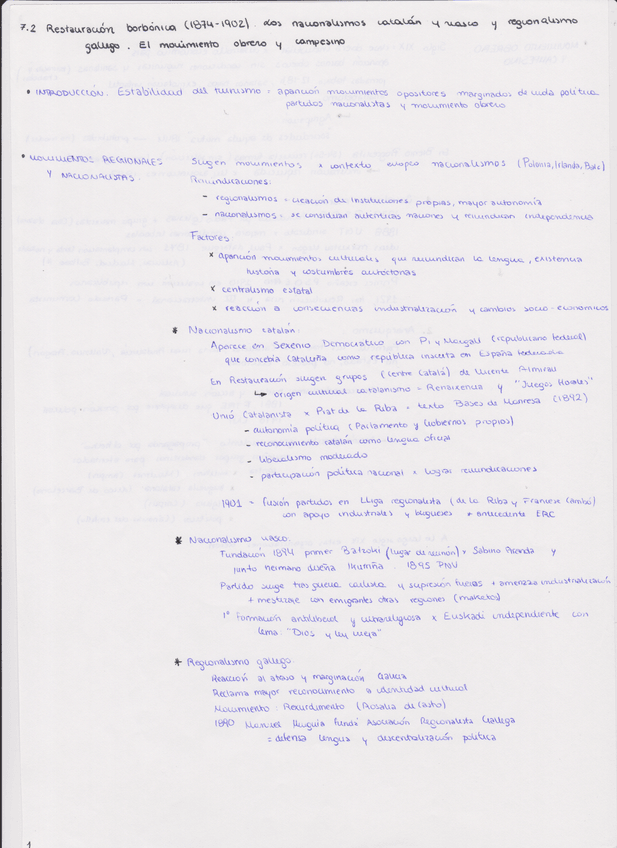 7.2 Restauración borbónica (1874-1902). Los nacionalismos catalán y vasco y regionalismo
gallego. El movimiento obrero y campesino
• INTRODUCCIÓN. Estabilidad del turnismo, aparición movimientos opositores marginados de vida política
partidos nacionalistas y movimiento obrero
• MOVIMIENTOS REGIONALES
Y NACIONALISTAS.
Surgen movimientos x contexto europeo nacionalismos (Polonia, Irlanda,
Reivindicaciones:
- regionalismos = creación de instituciones propias, mayor autonomía
- nacionalismos = se consideran auténticas naciones y reivindican independencia
Factores:
x aparición movimientos culturales que reivindican la lengua, existencia
historia y costumbres autóctonas
x centralismo estatal
x reacción a consecuencias industrialización y cambios socio-económicos
* Nacionalismo catalán:
Aparece en Sexenio Democrático con Pi y Margall (republicano federal)
que concebía Cataluña como república inserta en España federada
En Restauración surgen grupos (Centre Català) de Vicente Almirall
↳ origen cultural catalanismo = Renaixença y "Juegos Florales"
Unió Catalanista x Prat de la Riba = texto Bases de Manresa (1892)
- autonomía política (Parlamento y Gobiernos propios)
- reconocimiento catalán como lengua oficial
- liberalismo moderado
- participación política nacional x lograr reivindicaciones
1901 = fusión partidos en Lliga regionalista (de la Riba y Francesc Cambó)
con apoyo industriales y burgueses * antecedente ERC
* Nacionalismo vasco:
Fundación 1894 primer Batzoki (lugar de reunión) x Sabino Arana y
junto hermano diseña Ikurriña = 1895 PNV
Partido surge tras guerra carlista y supresión fueros + amenaza industrialización
+ mestizaje con emigrantes otras regiones (maketos)
1ª Formación antiliberal y ultrareligiosa x Euskadi independiente con
lema: "Dios y ley vieja"
* Regionalismo gallego
Reacción al atraso y marginación Galicia
Reclama mayor reconocimiento a identidad cultural
Movimiento: Rexurdimento (Rosalía de Castro)
1890 Manuel Murguía funda Asociación Regionalista Gallega
= defensa lengua y descentralización política
1